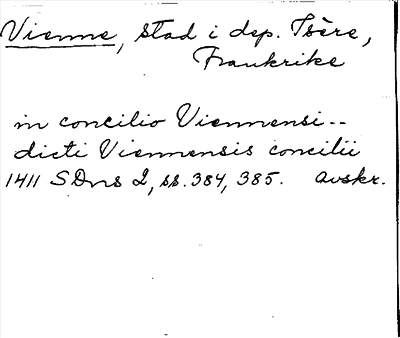 Vienne, stad i dep. Isère,
Frankrike
in concilio Viennensi--
dicti Viennensis concilii
1411 SDns 2, ss. 384, 385. avskr.